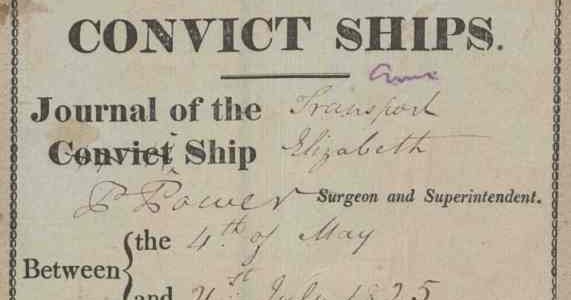 CONVICT SHIPS.
Journal of the Transport
Convict Ship Elizabeth
P Power Surgeon and Superintendent.
Between the 4th of May
and July 1825